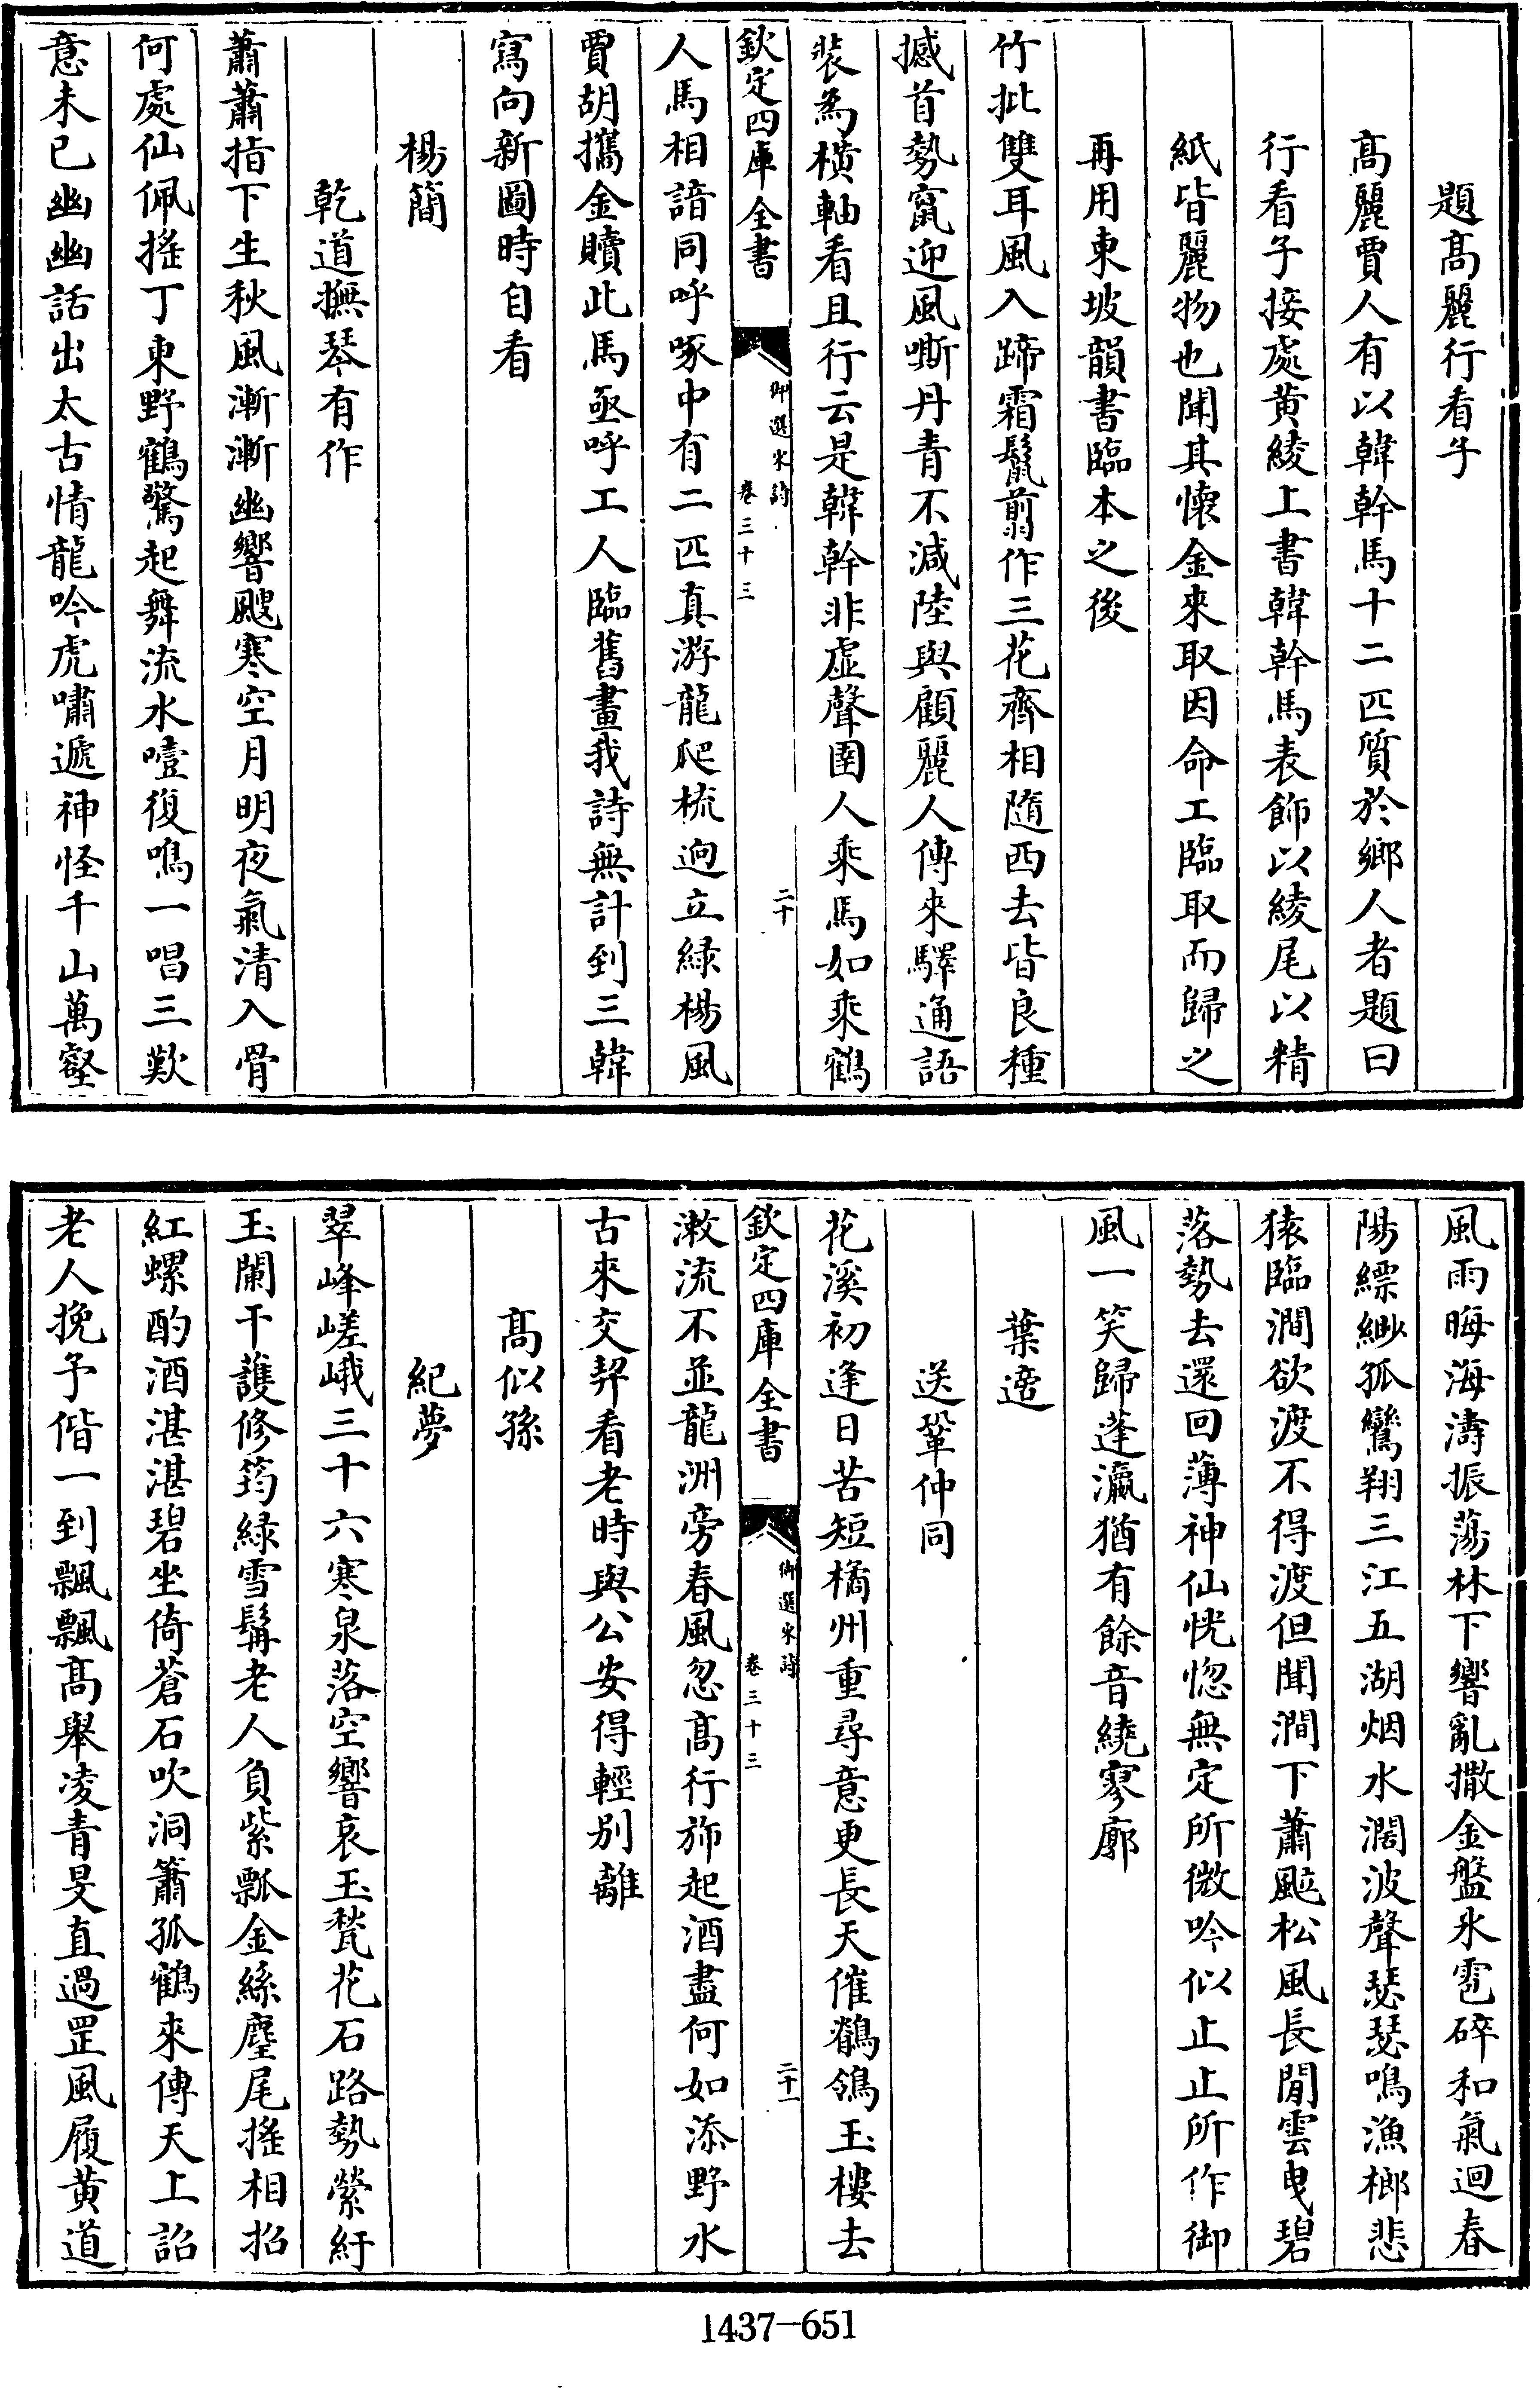 題髙麗行看子
髙麗賈人有以韓幹馬十二匹質於鄉人者題曰
行看子接處黄綾上書韓幹馬表飾以綾尾以精
紙皆麗物也聞其懐金來取因命工臨取而歸之
再用東坡韻書臨本之後
竹批雙耳風入蹄霜鬛翦作三花齊相隨西去皆良種
撼首勢竄迎風嘶丹青不減陸與顧麗人傳來驛通語
裝為橫軸看且行云是韓幹非虛聲圉人乘馬如乘鶴
欽定四庫全書
御選宋詩
卷三十三
二十
人馬相諳同呼啄中有二匹真游龍爬梳逈立緑楊風
賈胡攜金贖此馬亟呼工人臨舊畫我詩無計到三韓
寫向新圖時自看
楊簡
乾道撫琴有作
蕭蕭指下生秋風漸漸幽響颼寒空月明夜氣清入骨
何處仙佩搖丁東野鶴驚起舞流水噎復鳴一唱三歎
意未已幽幽話出太古情龍吟虎嘯遞神怪千山萬壑
風雨晦海濤振蕩林下響亂撒金盤氷雹碎和氣迴春
陽縹緲孤鸞翔三江五湖烟水濶波聲瑟瑟鳴漁榔悲
猿臨澗欲渡不得渡但聞澗下蕭颭松風長閒雲曳碧
落勢去還回薄神仙恍惚無定所微吟似止止所作御
風一笑歸蓬瀛猶有餘音繞寥廓
葉適
送鞏仲同
花溪初逢日苦短橘州重尋意更長天催鶺鴒玉樓去
欽定四庫全書
御選宋詩
卷三十三
二十一
漱流不並龍洲旁春風忽髙行斾起酒盡何如添野水
古來交契看老時與公安得輕別離
髙似孫
紀夢
翠峰嵯峨三十六寒泉落空響哀玉甃花石路勢縈紆
玉闌干護修筠緑雪髯老人負紫瓢金絲麈尾搖相招
紅螺酌酒湛湛碧坐倚蒼石吹洞簫孤鶴來傳天上詔
老人挽予偕一到飄飄髙舉凌青旻直過罡風履黄道
1437-651